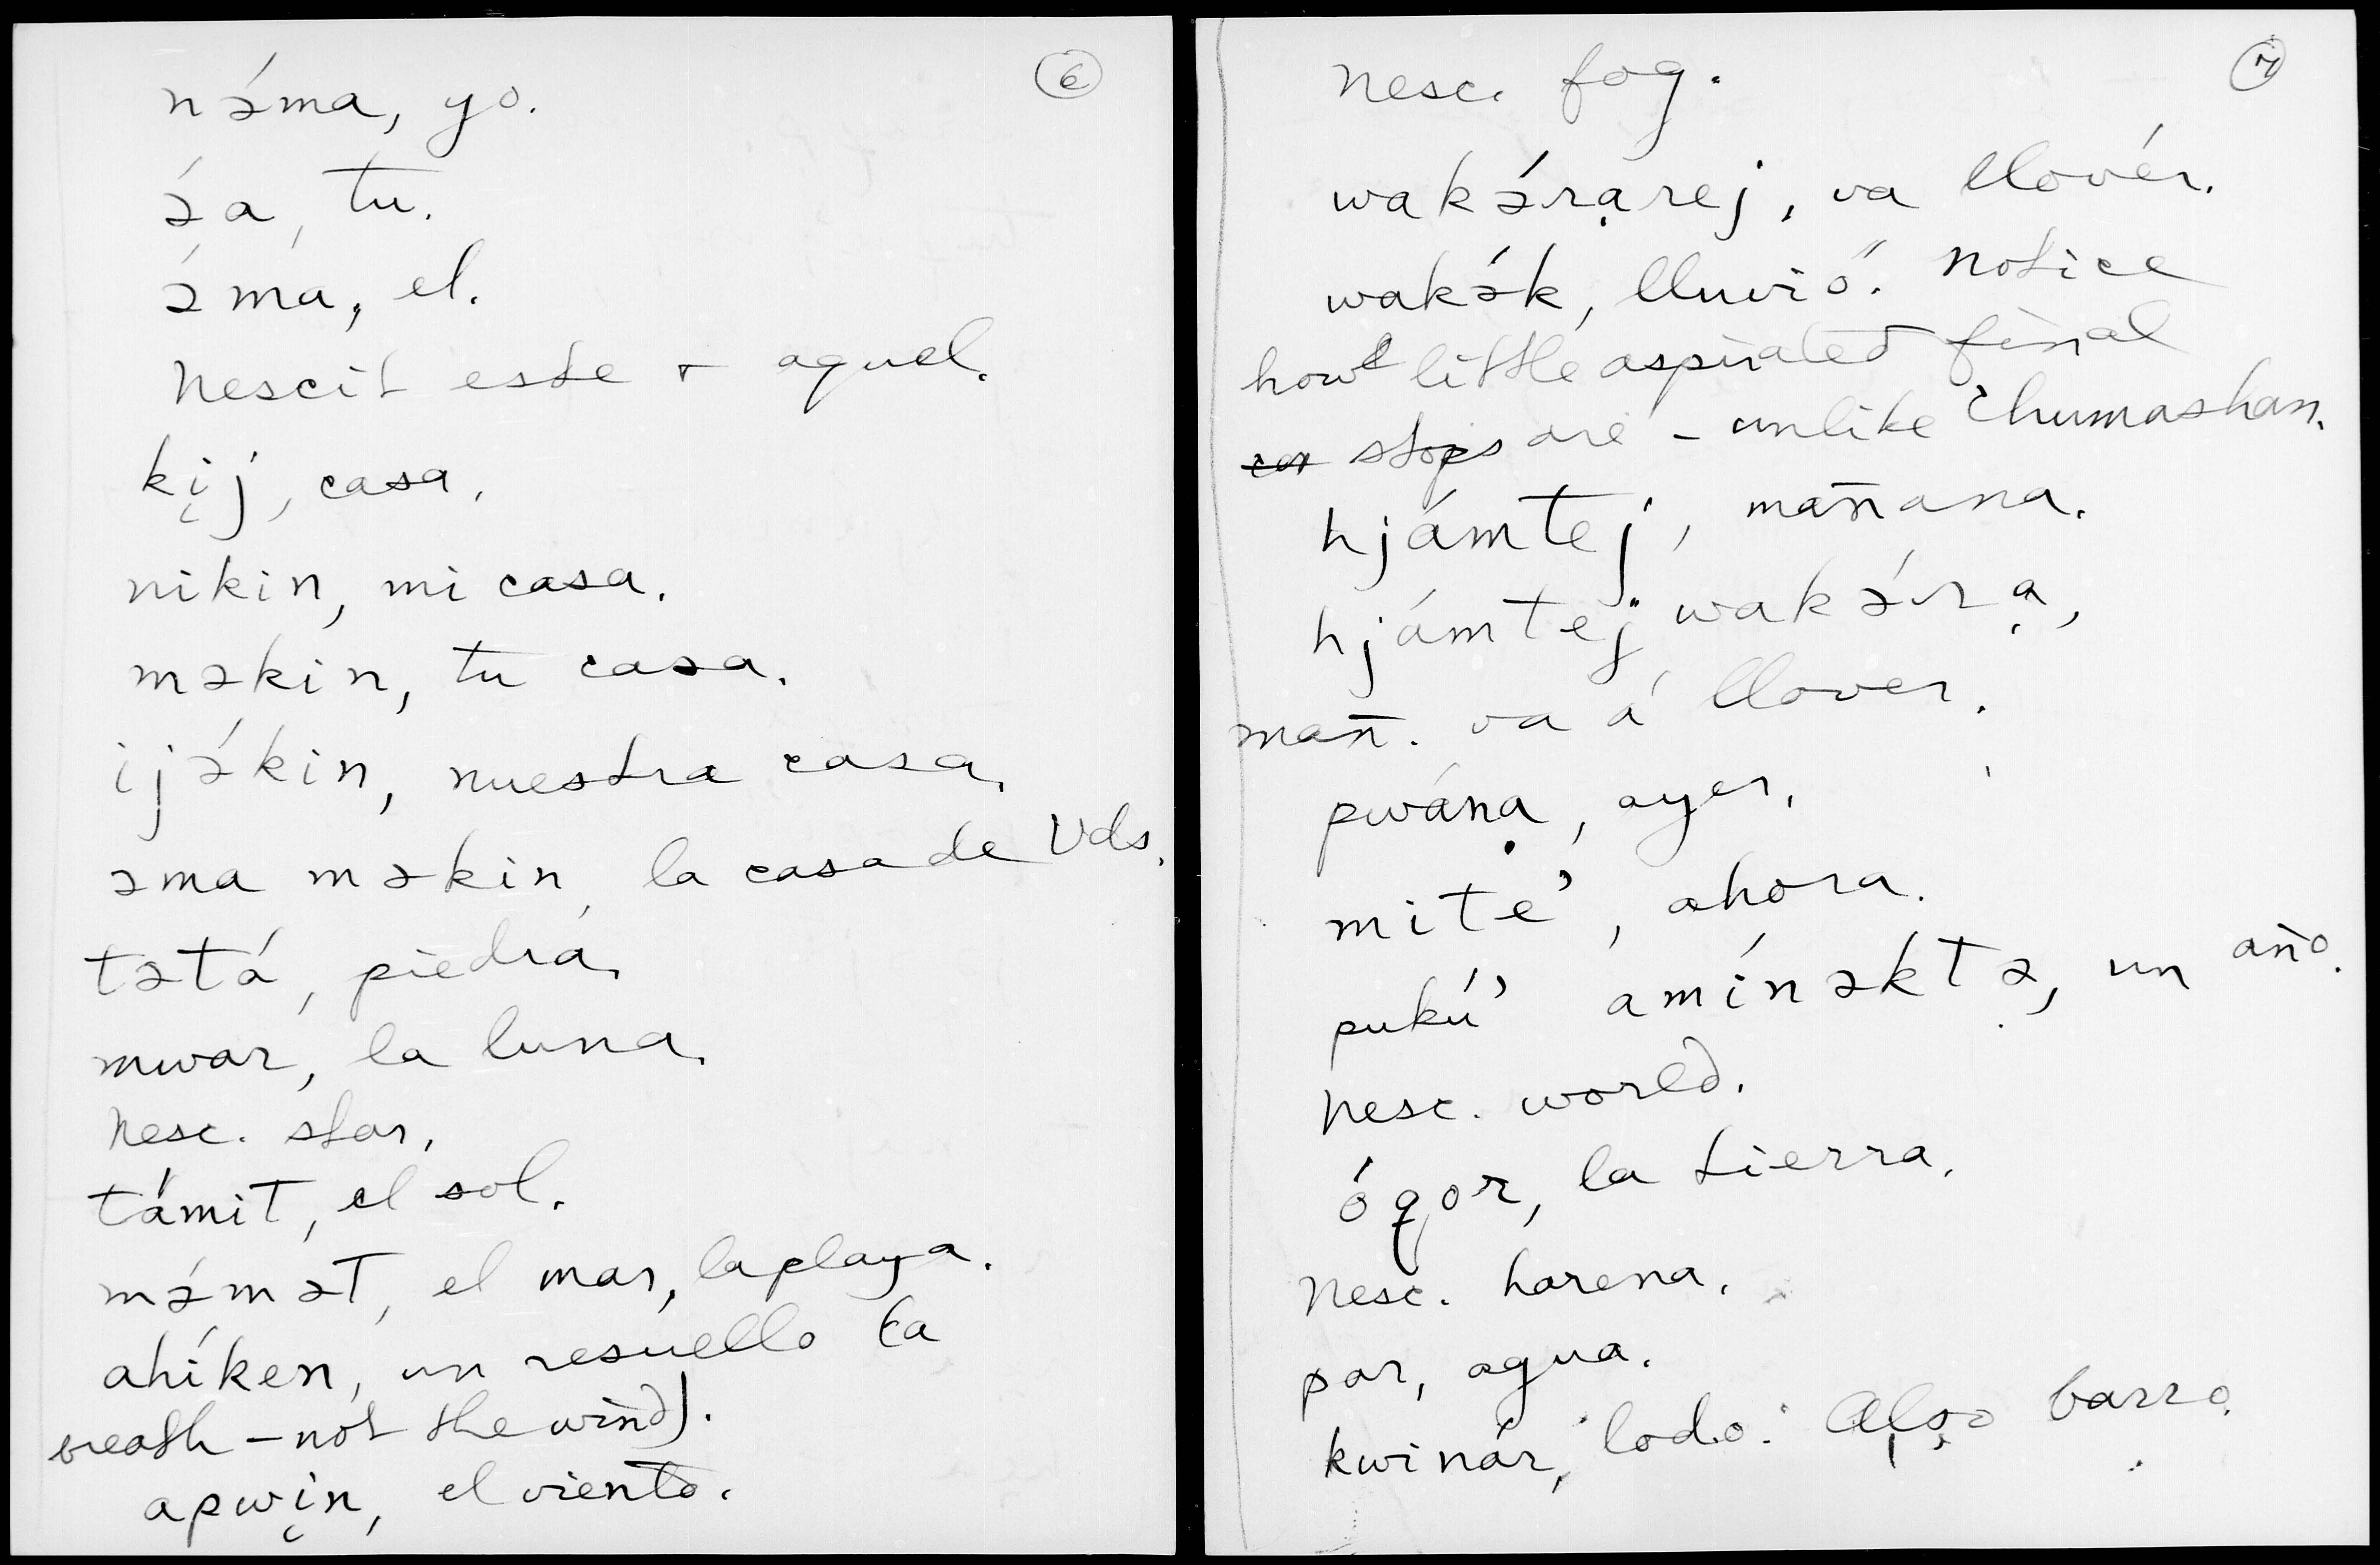 6
nə́ma, yo.
ə́a, tu.
ə́ma, el.
Nescit este + aquel.
kịj, casa.
nikin, mi casa.
məkin, tu casa.
ijə́kin, nuestra casa.
əma məkin, la casa de Vds.
tətá, piedra.
mwar, la luna.
Nesc. star.
támit, el sol.
mə́mət, el mar, la playa.
ahíken, un resuello (a
breath - not the wind).
apwịn, el viento.
7
Nesc. fog.
wakə́rạrej, va llovér.
wakə́k, lluvió. Notice
how little aspirated final
stops are - unlike Chumashan.
hjámtej, mañana.
hjámtej wakə́rạ,
mañ. va á llover.
pwánạ, ayer.
mite', ahora.
pukú' amínəktə, un año.
Nesc. world.
óqor, la tierra.
Nesc. harena.
par, agua.
kwinár, lodo. Also barro.